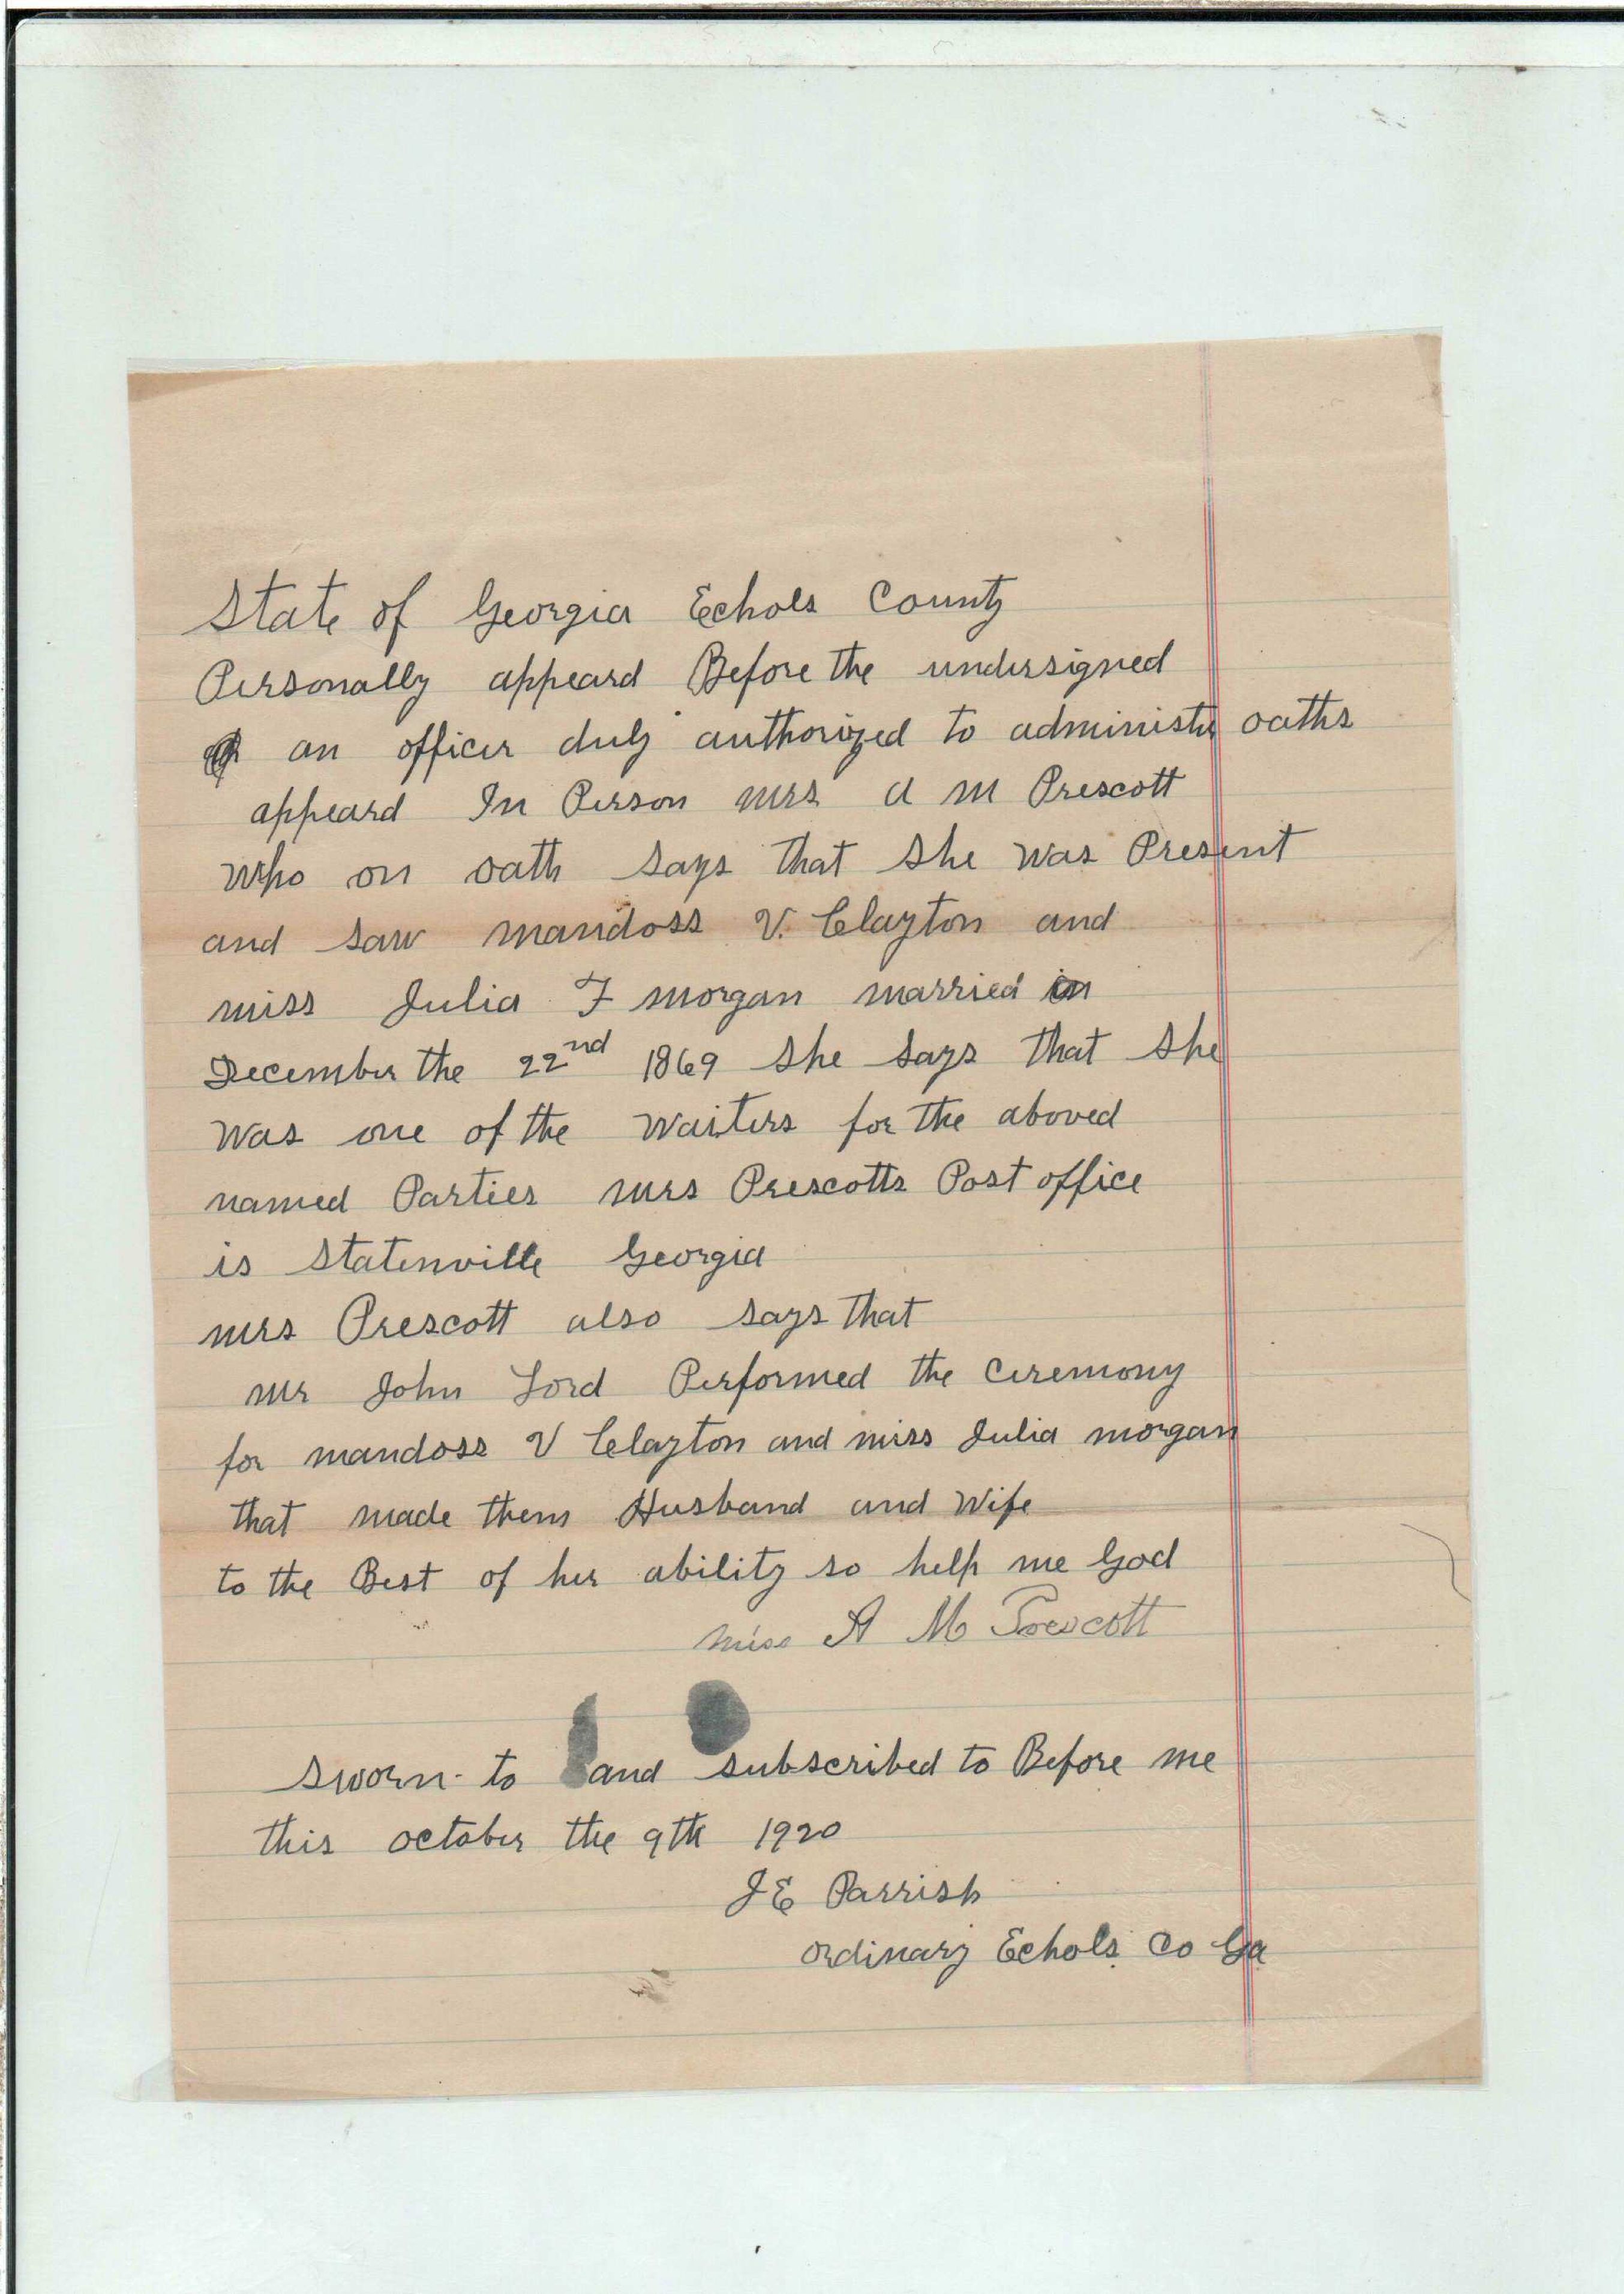 State of Georgia Echols County
Personally appeard Before the undersigned
an officer duly authorized to administer oaths
appeard In Person mrs A M Prescott
who on oath says that she was Present
and saw mandoss V. Clayton and
miss Julia F morgan married in
December the 22nd 1869 she says that she
was one of the waiters for the aboved
named Parties mrs Prescotts Post office
is Statenville Georgia
mrs Prescott also says that
mr John Lord Performed the ceremony
for mandoss V Clayton and miss Julia morgan
that made them Husband and Wife
to the Best of her ability so help me God
miss A M Prescott
sworn to and subscribed to Before me
this october the 9th 1920
J E Parrish
ordinary Echols Co Ga